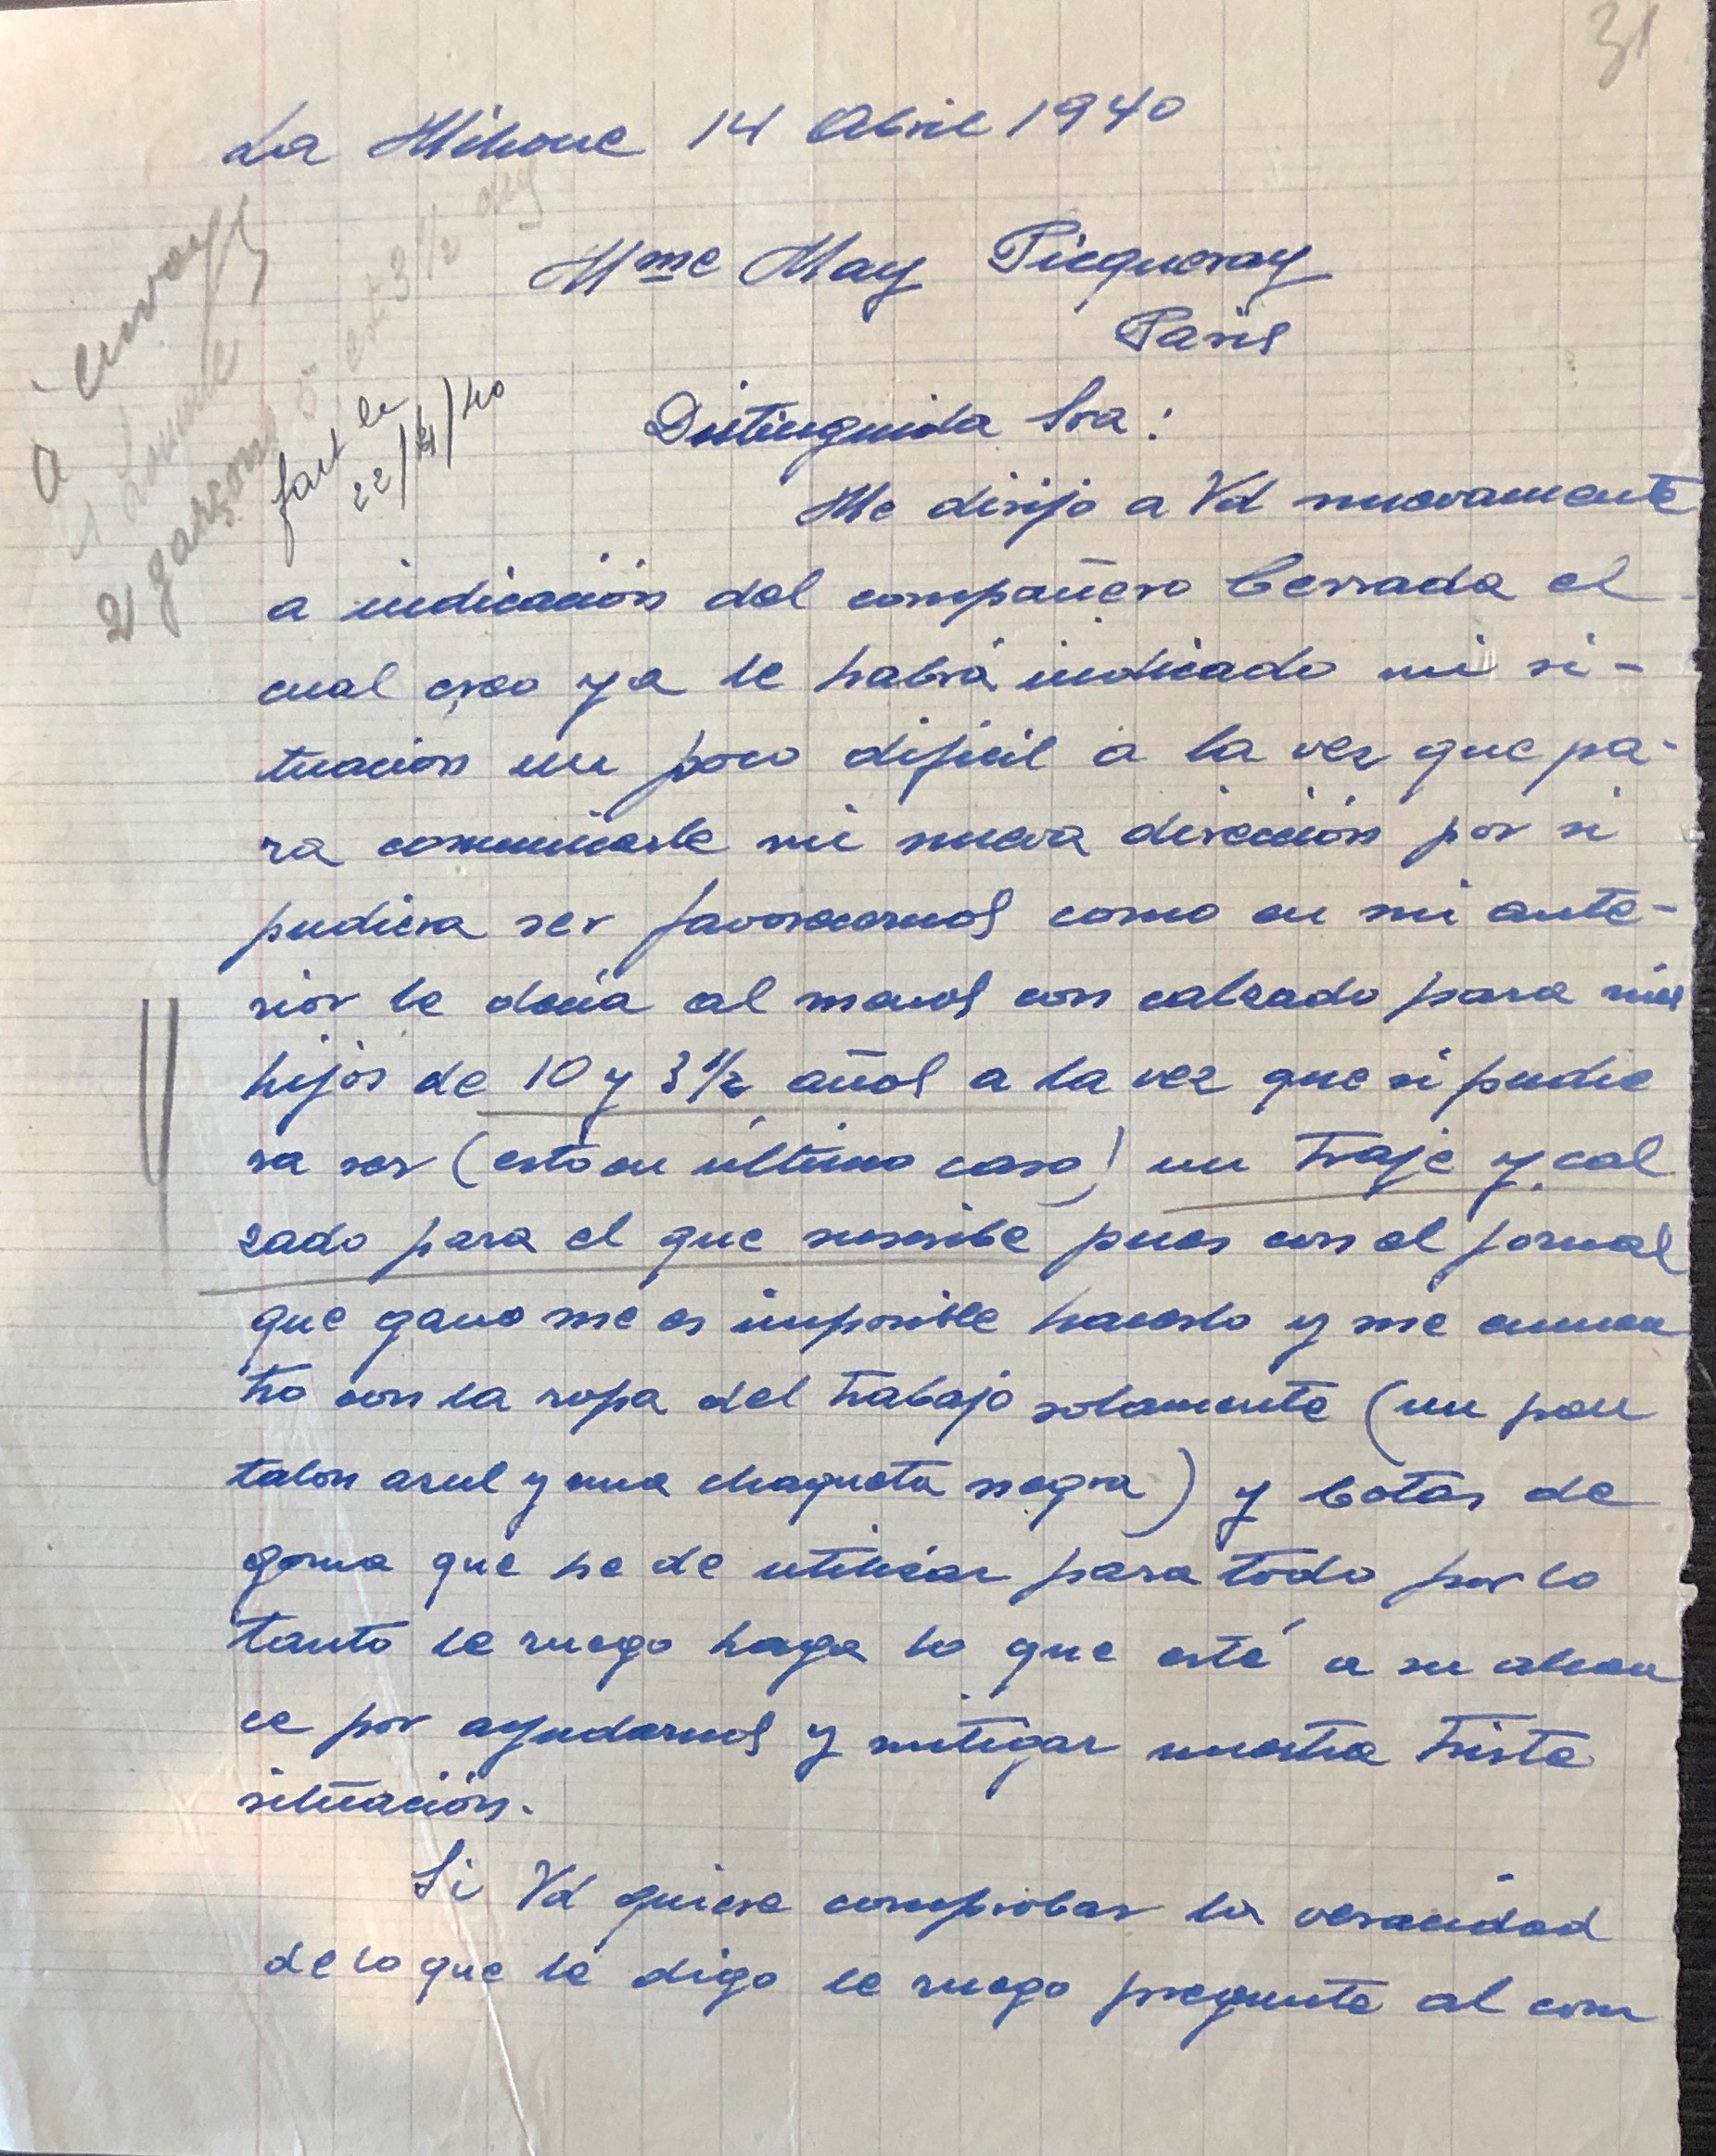 31
La Mihoue 14 Abril 1940
Mme May Picqueray
Paris
à envoyer
2 garçons
et 3 1/2
fait le
22/4/40
Distinguida Sra:
Me dirijo a Vd nuevamente
a indicación del compañero Cerrada el
cual creo ya le habrá indicado mi si-
tuación un poco dificil a la vez que pa-
ra comunicarle mi nueva dirección por si
pudiera ser favorecernos como en mi ante-
rior le decia al menos con calzado para mis
hijos de 10 y 3 1/2 años a la vez que si pudie
ra ser (esto en último caso) un traje y cal
zado para el que suscribe pues con el jornal
que gano me es imposible hacerlo y me encuen
tro con la ropa del trabajo solamente (un pan
talon azul y una chaqueta negra) y botas de
goma que he de utilizar para todo por lo
tanto le ruego haga lo que esté a su alcan
ce por ayudarnos y mitigar nuestra triste
situación.
Si Vd quiere comprobar la veracidad
de lo que le digo le ruego pregunte al com